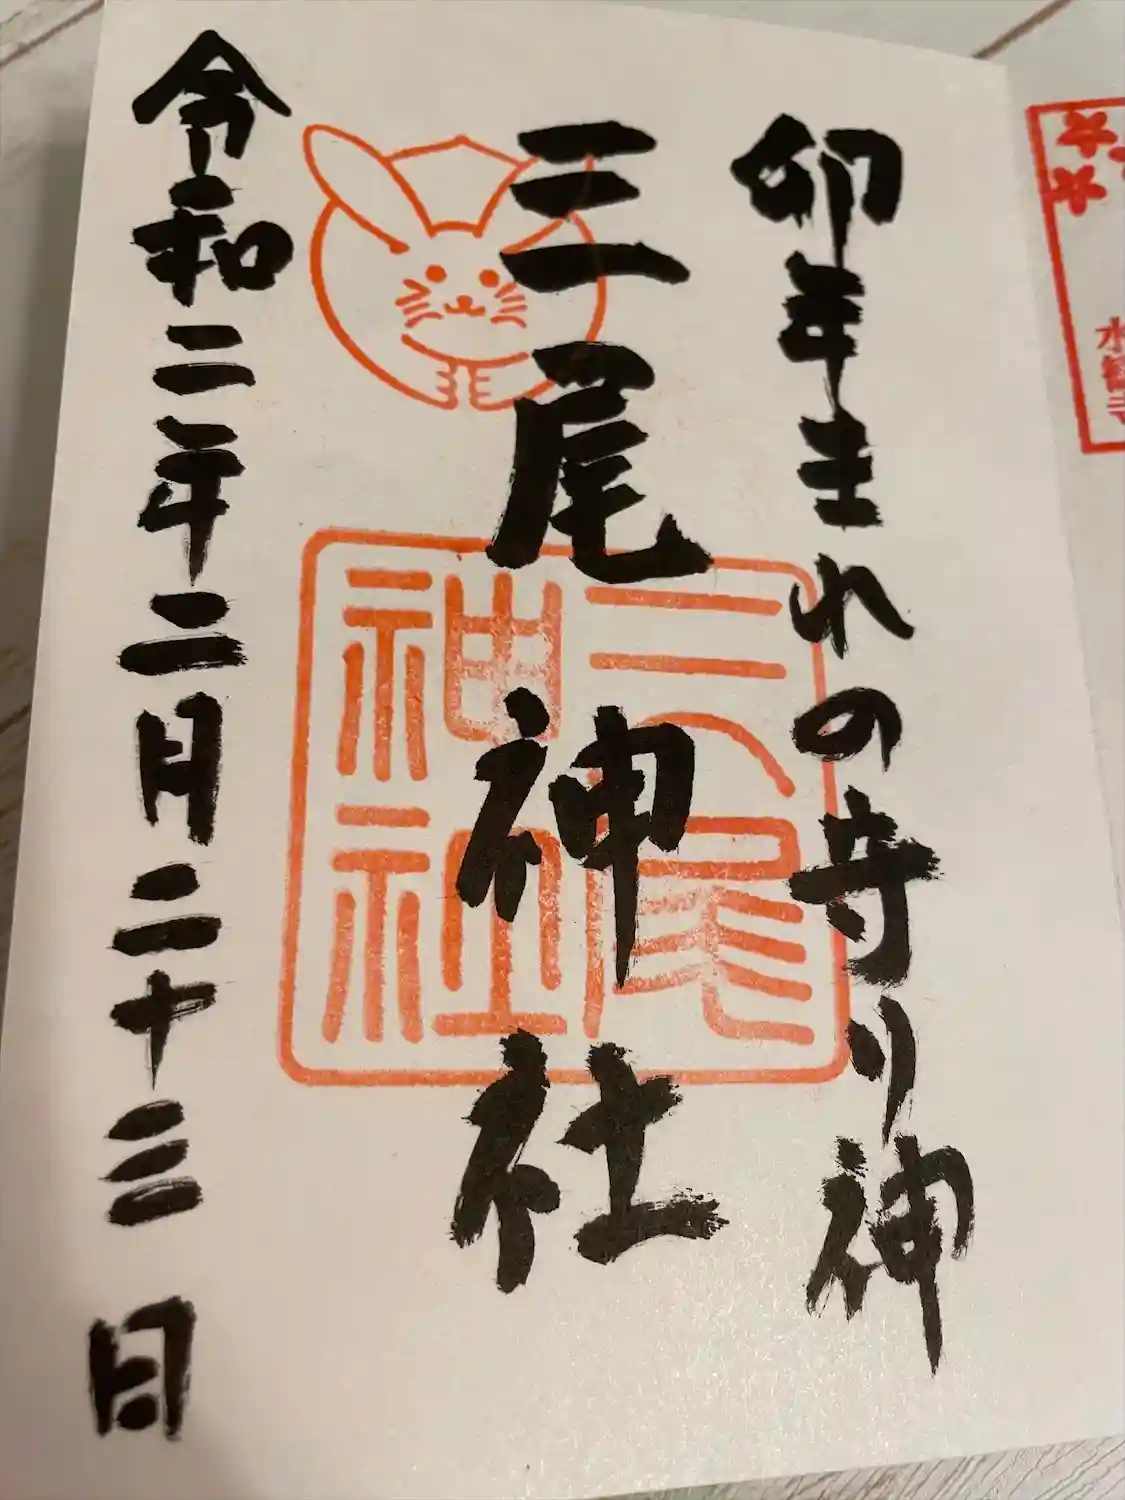 卯年生れの守り神
三尾神社
令和二年二月二十三日
三尾
神社